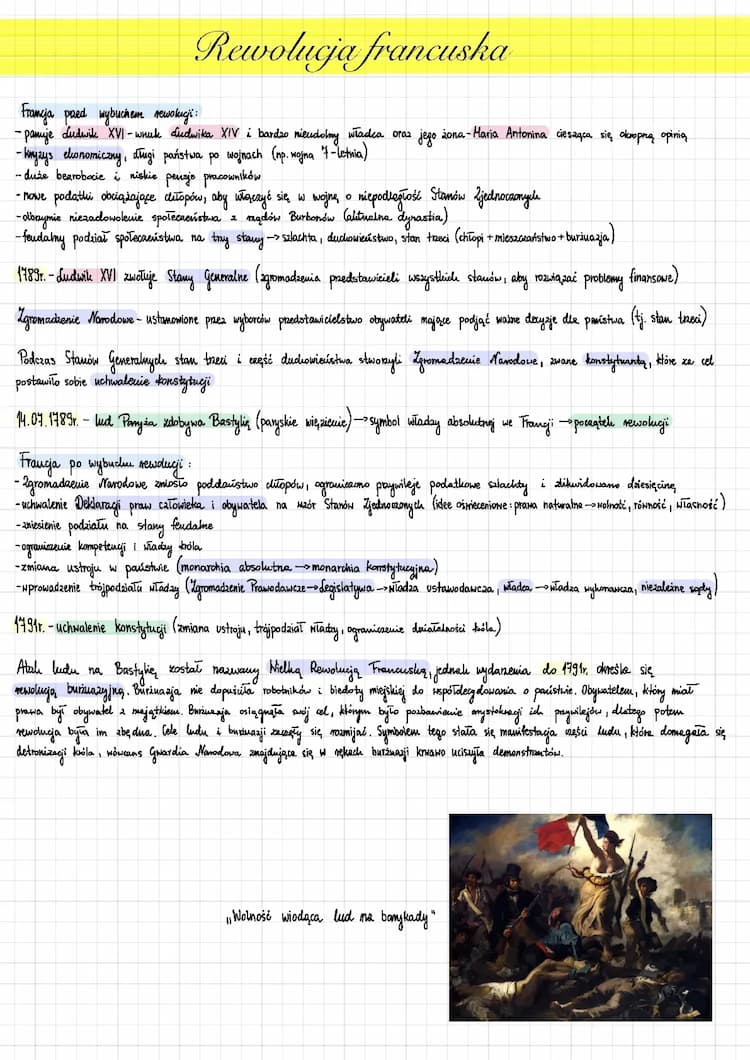 Rewolucja francuska
Francja przed wybuchem rewolucji:
- panuje Ludwik XVI - wnuk Ludwika XIV i bardzo nieudolny władca oraz jego żona - Maria Antonina ciesząca się okropną opinią
- kryzys ekonomiczny, długi państwa po wojnach (np. wojna 7-letnia)
- duże bezrobocie i niskie pensje pracowników
- nowe podatki obciążające chłopów, aby włączyć się w wojnę o niepodległość Stanów Zjednoczonych
- olbrzymie niezadowolenie społeczeństwa z rządów Burbonów (aktualna dynastia)
- feudalny podział społeczeństwa na trzy stany → szlachta, duchowieństwo, stan trzeci (chłopi + mieszczaństwo + burżuazja)
1789r. - Ludwik XVI zwołuje Stany Generalne (zgromadzenia przedstawicieli wszystkich stanów, aby rozwiązać problemy finansowe)
Zgromadzenie Narodowe - ustanowione przez wyborców przedstawicielstwo obywateli mające podjąć ważne decyzje dla państwa (tj. stan trzeci)
Podczas Stanów Generalnych stan trzeci i część duchowieństwa stworzyli Zgromadzenie Narodowe, zwane konstytuantą, które za cel
postawiło sobie uchwalenie konstytucji
14.07.1789r. - lud Paryża zdobywa Bastylię (paryskie więzienie) → symbol władzy absolutnej we Francji → początek rewolucji
Francja po wybuchu rewolucji:
- Zgromadzenie Narodowe zniosło poddaństwo chłopów, ograniczono przywileje podatkowe szlachty i zlikwidowano dziesięcinę
- uchwalenie Deklaracji praw człowieka i obywatela na wzór Stanów Zjednoczonych (idee oświeceniowe: prawa naturalne → wolność, równość, własność)
- zniesienie podziału na stany feudalne
- ograniczenie kompetencji i władzy króla
- zmiana ustroju w państwie (monarchia absolutna → monarchia konstytucyjna)
- wprowadzenie trójpodziału władzy (Zgromadzenie Prawodawcze → Legislatywa → władza ustawodawcza, władca → władza wykonawcza, niezależne sądy)
1791r. - uchwalenie konstytucji (zmiana ustroju, trójpodział władzy, ograniczenie działalności króla)
Atak ludu na Bastylię został nazwany Wielką Rewolucją Francuską, jednak wydarzenia do 1791r. określa się
rewolucją burżuazyjną. Burżuazja nie dopuściła robotników i biedoty miejskiej do współdecydowania o państwie. Obywatelem, który miał
prawa był obywatel z majątkiem. Burżuazja osiągnęła swój cel, którym było pozbawienie arystokracji ich przywilejów, dlatego potem
rewolucja była im zbędna. Cele ludu i burżuazji zaczęły się rozmijać. Symbolem tego stała się manifestacja części ludu, która domagała się
detronizacji króla, wówczas Gwardia Narodowa znajdująca się w rękach burżuazji krwawo uciszyła demonstrantów.
„Wolność wiodąca lud na barykady"